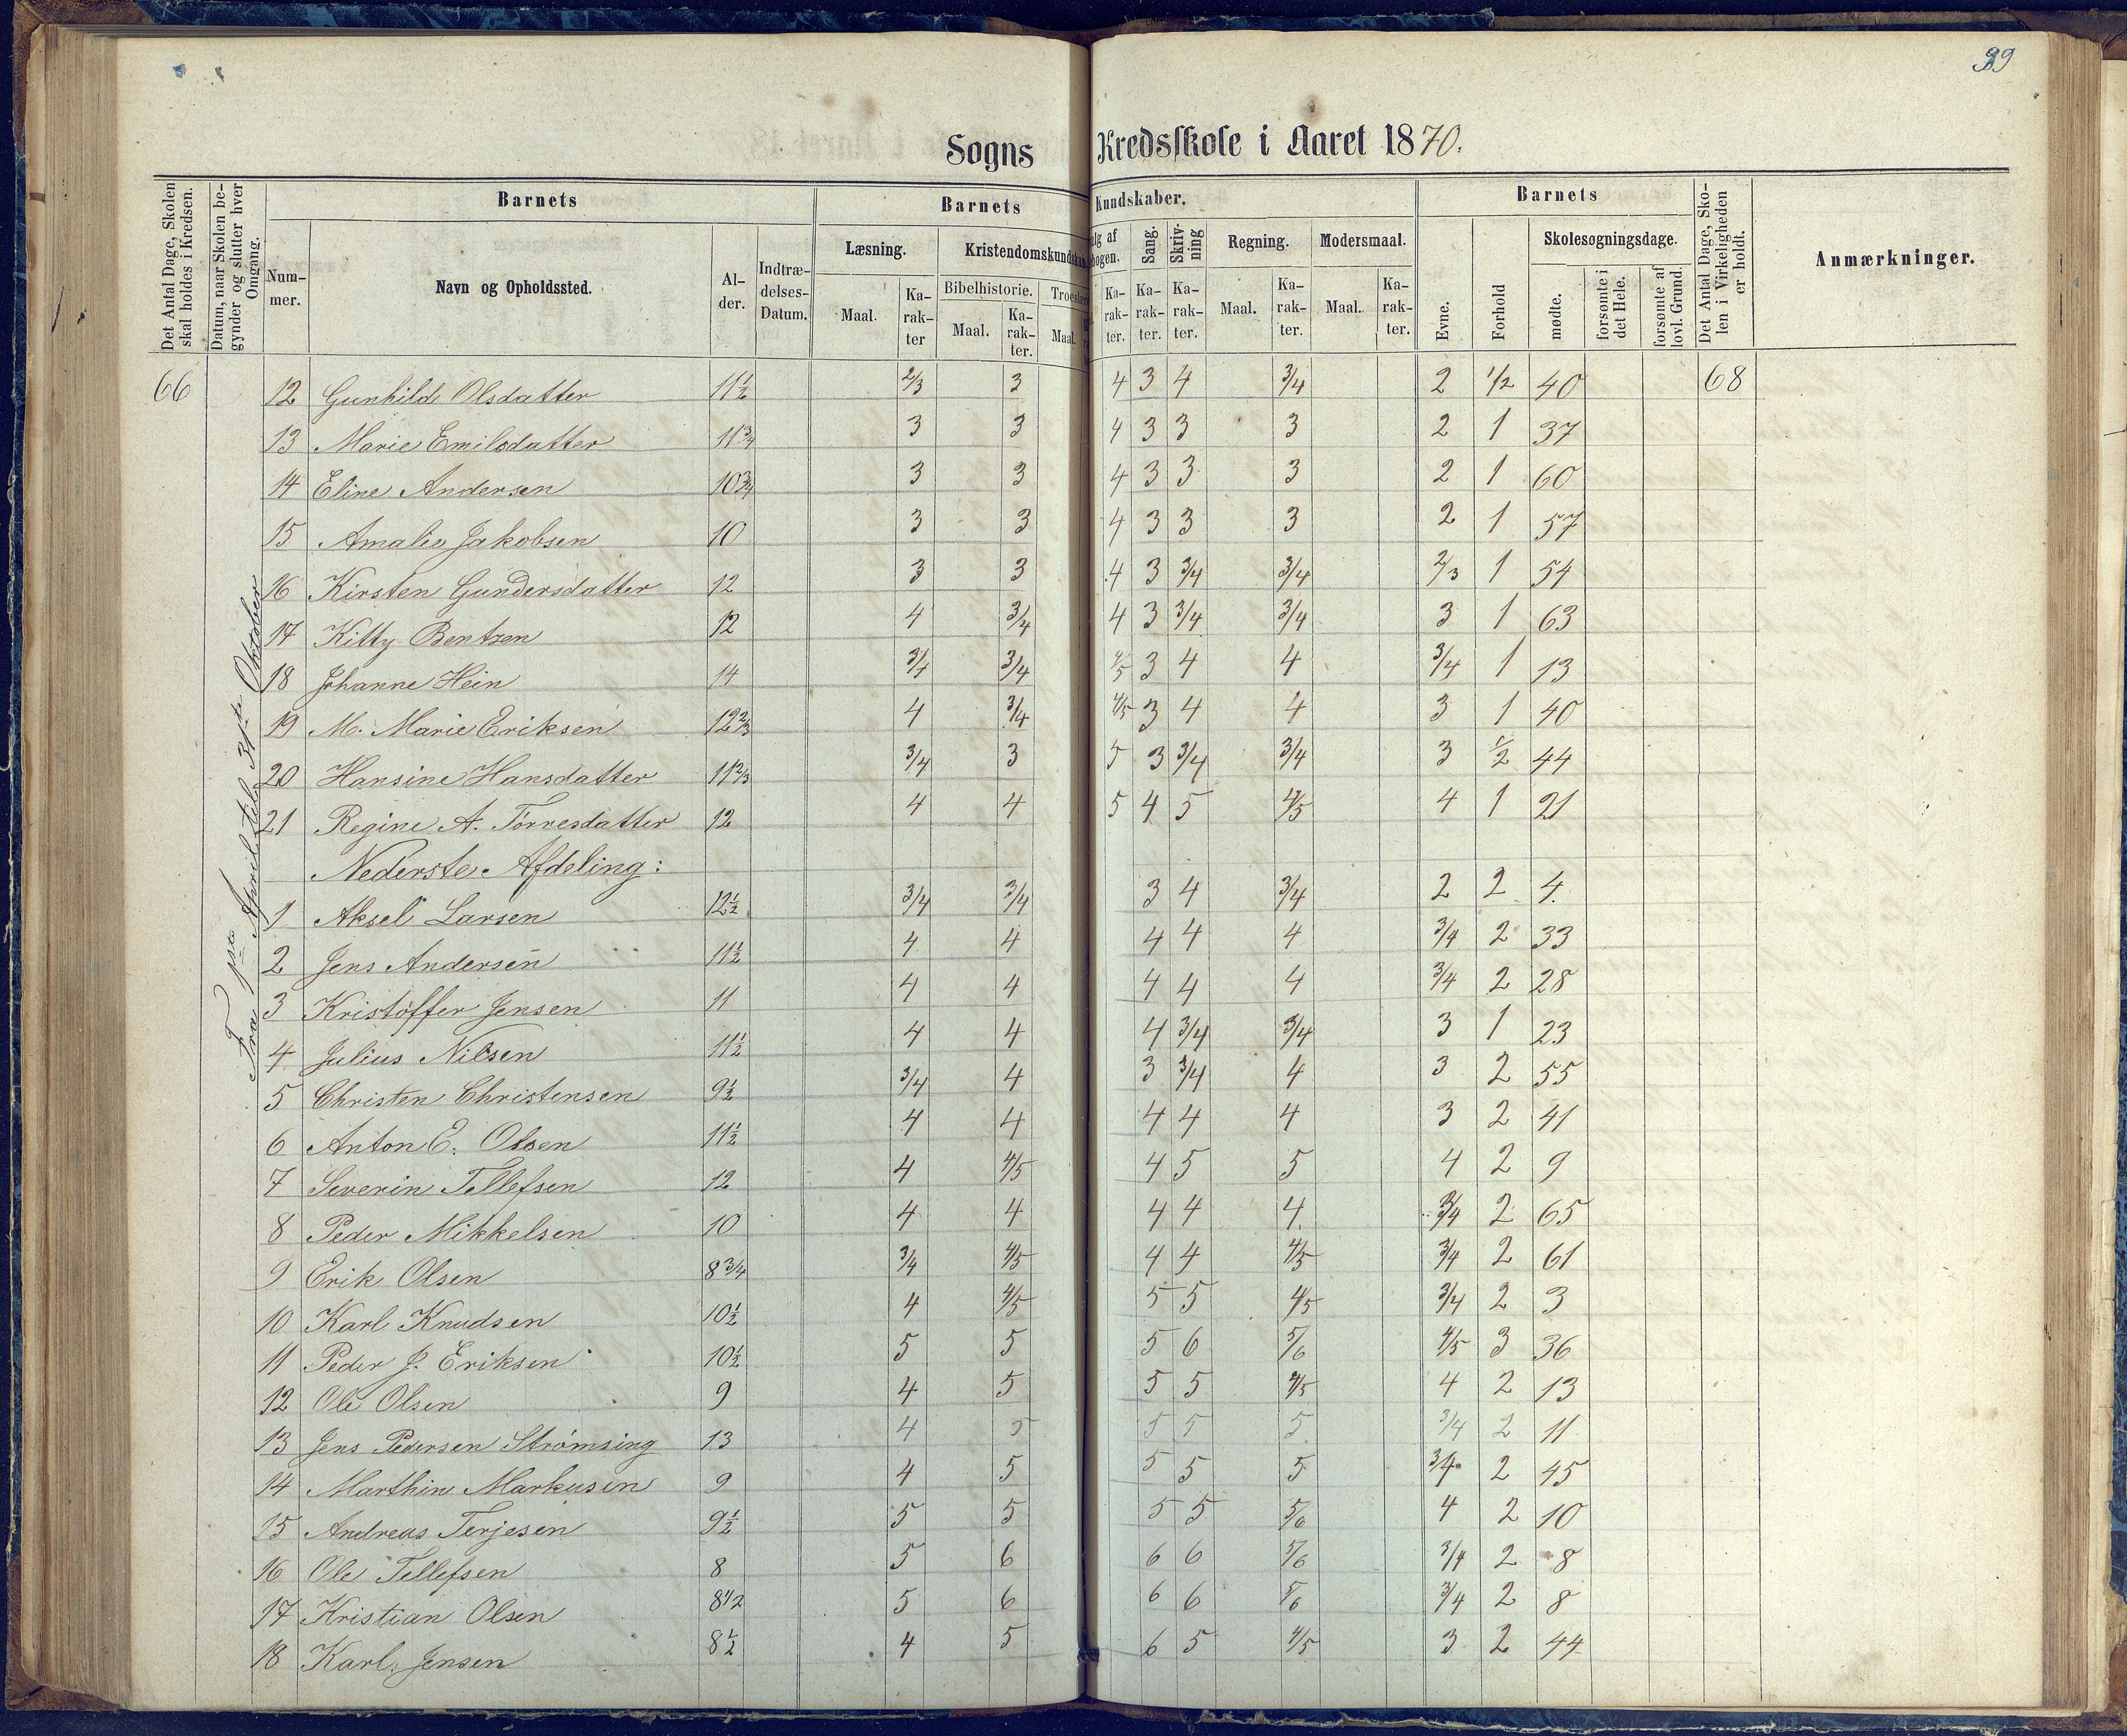 99
Sogns Kredsskole i Aaret 1870.
Det Antal Dage, Skolen skal holdes i Kredsen.
Datum, naar Skolen begynder og slutter hver Omgang.
Barnets
Nummer.
Navn og Opholdssted.
Alder.
Indtrædelses-Datum.
Barnets Kundskaber.
Læsning.
Maal.
Karakter
Kristendomskundskab
Bibelhistorie.
Maal.
Karakter.
Troeslære
Maal.
lg af
bogen.
Karakter.
Sang.
Karakter.
Skrivning
Karakter.
Regning.
Maal.
Karakter.
Modersmaal.
Maal.
Karakter.
Barnets
Evne.
Forhold
Skolesøgningsdage.
mødte.
forsømte i det Hele.
forsømte af lovl. Grund.
Det Antal Dage, Skolen i Virkeligheden er holdt.
Anmærkninger.
Fra 1ste April til 31te Oktober
66 12 Gunhild Olsdatter 11½ 2/3 3 4 3 4 3/4 2 1/2 40 68
13 Marie Emilsdatter 11¾ 3 3 4 3 3 3 2 1 37
14 Eline Andersen 10¾ 3 3 4 3 3 3 2 1 60
15 Amalie Jakobsen 10 3 3 4 3 3 3 2 1 57
16 Kirsten Gundersdatter 12 3 3 4 3 3/4 3/4 2/3 1 54
17 Kitty Bentzen 12 4 3/4 4 3 3/4 3/4 3 1 63
18 Johanne Hein 14 3/4 3/4 4/5 3 4 4 3/4 1 13
19 M. Marie Eriksen 12⅔ 4 3/4 4/5 3 4 4 3 1 40
20 Hansine Hansdatter 11⅔ 3/4 3 5 3 3/4 3/4 3 1/2 44
21 Regine A. Tørresdatter 12 4 4 5 4 5 4/5 4 1 21
Nederste Afdeling:
1 Aksel Larsen 12½ 3/4 3/4 3 4 3/4 2 2 4
2 Jens Andersen 11½ 4 4 4 4 4 3/4 2 33
3 Kristoffer Jensen 11 4 4 4 4 4 3/4 2 28
4 Julius Nilsen 11½ 4 4 4 3/4 3/4 3 1 23
5 Christen Christensen 9½ 3/4 4 3 3/4 4 3 2 55
6 Anton E. Olsen 11½ 4 4 4 4 4 3 2 41
7 Severin Tellefsen 12 4 4/5 4 5 5 4 2 9
8 Peder Mikkelsen 10 4 4 4 4 4 3/4 2 65
9 Erik Olsen 8¾ 3/4 4/5 4 4 4/5 3/4 2 61
10 Karl Knudsen 10½ 4 4/5 5 5 4/5 3/4 2 3
11 Peder J. Eriksen 10½ 5 5 5 6 5/6 4/5 3 36
12 Ole Olsen 9 4 5 5 5 4/5 4 2 13
13 Jens Pedersen Strømsing 13 4 5 5 5 5 3/4 2 11
14 Marthin Markusen 9 4 5 5 5 5 3/4 2 45
15 Andreas Terjesen 9½ 5 5 5 5 5/6 4 2 10
16 Ole Tellefsen 8 5 6 6 6 5/6 3/4 2 8
17 Kristian Olsen 8½ 5 6 6 6 5/6 3/4 2 8
18 Karl Jensen 8½ 4 5 6 5 4/5 3 2 44